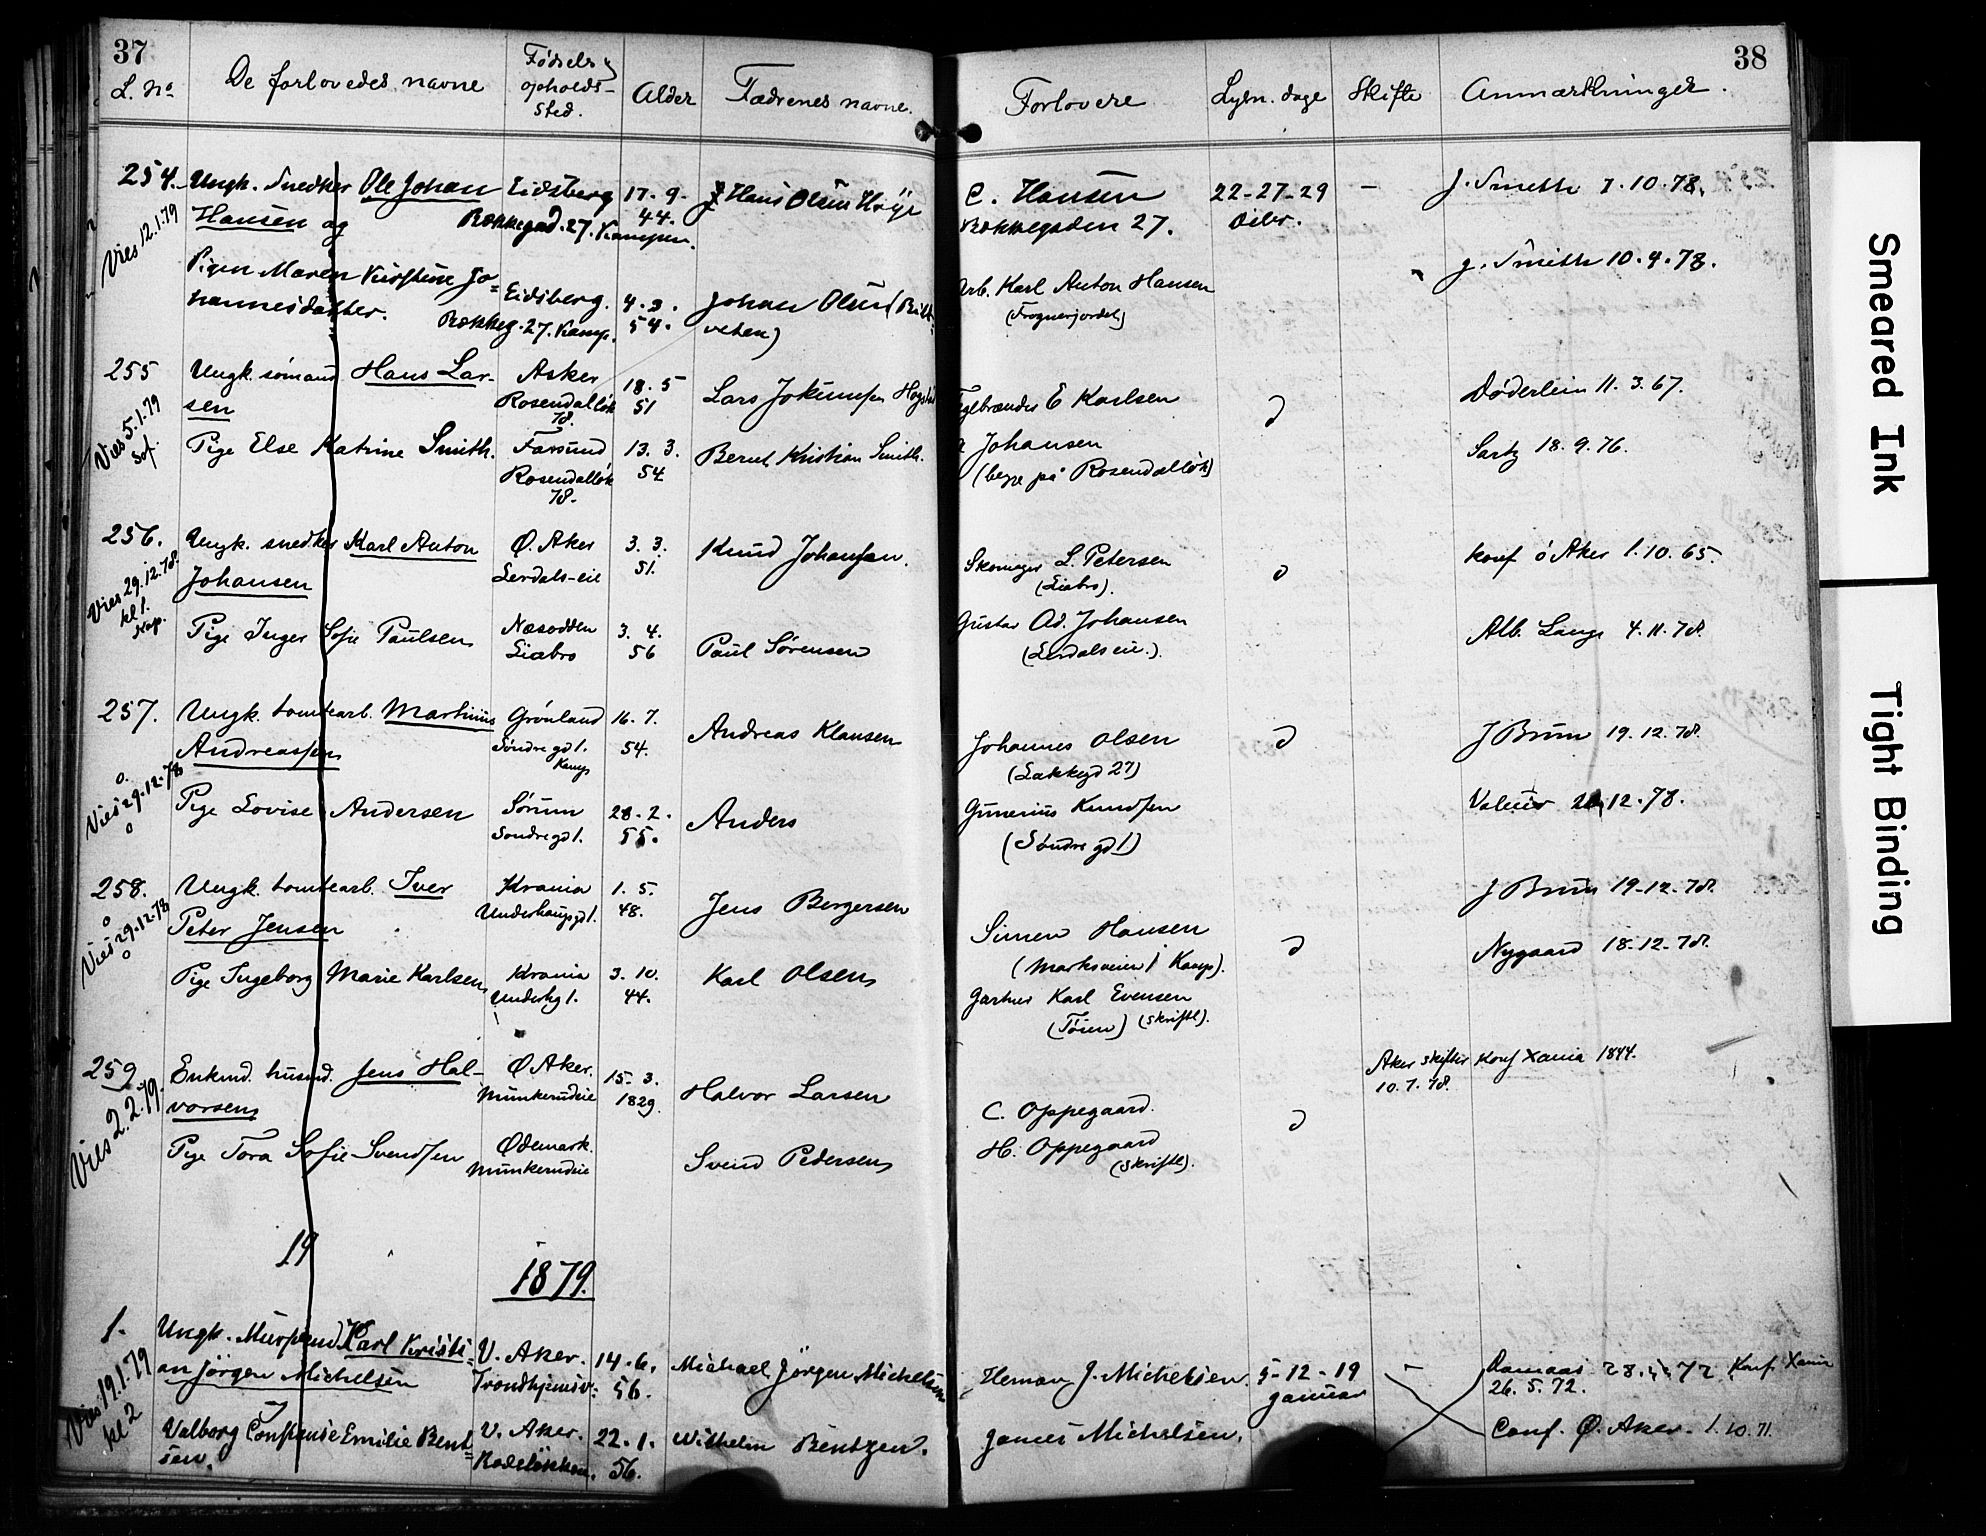 37
L. No
De forlovedes navne
Fødsels
opholds-
sted.
Alder
Fædrenes navne.
254. Ungk. Snedker Ole Johan Eidsberg 17-9- Hans Olsen
Hansen og Rökkegad. 27. Kampen. 44.
Vies 12.1.79
Pigen Maren Kirstine Jo= Eidsberg. 4.3. Johan Olsen
hannesdatter. Rökkeg. 27. Kamp. 54.
255 Ungk. sømand Hans Lar- Asker 18. 5 Lars Jokumsen
sen Rosendalløk 51
78.
Vies 5.1.79
Pige Else Katrine Smith. Farsund 13. 3. Bernt Kristian Smith.
Rosendalløk 54
78.
256. Ungk. snedker Karl Anton Ø. Aker 3. 3. Knud Johansen.
Johansen Lerdals-eie 51.
Vies 29.12.78.
kl 1.
Kap.
Pige Inger Sofie Paulsen Næsodden 3. 4. Paul Sørensen
Liabro 56
257. Ungk. tomtearb. Martinius Grønland 16. 7. Andreas Klausen
Andreassen Søndre gd 1. 54.
Kamp
Vies 29-12-78
Pige Lovise Andersen Sørum 28. 2. Anders
Søndre gd 1. 55.
258. Ungk. tomtearb. Iver Krania 1. 5. Jens Bergersen
Peter Jensen Underhaugsgd 1. 48.
Vies 29.12.78
Pige Ingeborg Marie Karlsen Krania 3. 10. Karl Olsen
Underhg 1. 44.
259 Enkmd. husmd. Jens Hal- Ø Aker. 15. 3. Halvor Larsen
vorsen Munkerudeie 1829.
Vies 2.2.79.
Pige Tora Sofie Svendsen Ødemark. Svend Pedersen
Munkerudeie
19
1879.
1. Ungk. Mursvend Karl Kristi= V. Aker. 14.6. Michael Jörgen Michelsen
an Jörgen Michelsen Trondhjemsv: 56.
Vies 19.1.79
kl 2
Valborg Constanse Emilie Bent= V. Aker. 22.1. Wilhelm Bentzen.
sen. Rodeløkken. 56.
38
Forlovere
Lysn. dage
Skifte
Anmærkninger.
C. Hansen 22-27-29 - J. Smith 7.10.78.
Rökkegaden 27. Decbr.
Arb. Karl Anton Hansen g. Smith 10.4.78.
(Frognerjordet)
Teglbrænder E Karlsen Døderlein 11. 3. 67.
Johansen Sartz 18. 9. 76.
(begge på Rosendalløk)
Skomager L. Petersen konf Ø Aker 1.10.65.
(Liabro).
Gustav Ad. Johansen Alb. Lange 4.11.78.
(Lerdals eie.).
Johannes Olsen J Brun 19.12.78.
(Lakkegd 27)
Gunerius Knudsen 12.78.
(Søndre gd 1)
Simen Hansen J Brun 19-12.78.
(Marksveien 1 Kamp). Nygaard 18.12.78.
Gartner Karl Evensen
(Tøien) (skriftl).
C. Oppegaard. Aker skifter Konf Xania 1844.
10.7.78.
H. Oppegaard
(skriftl).
Herman J. Michelsen. 5-12-19 - 72 Konf Xania
januar 26.5.72.
James Michelsen. Conf. Ø. Aker. 1.10.71.
Smeared Ink
Tight Binding